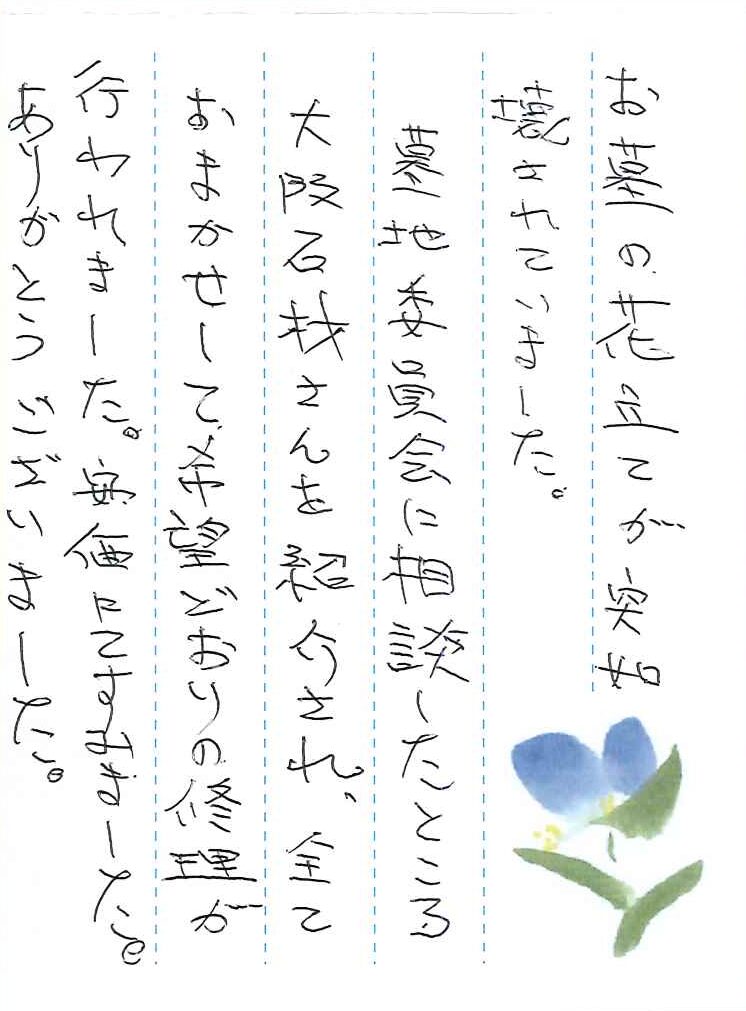 お墓の花立てが突如
壊されていました。
墓地委員会に相談したところ
大阪石材さんを紹介され、全て
おまかせして、希望どおりの修理が
行われました。安価にてすみました。
ありがとうございました。